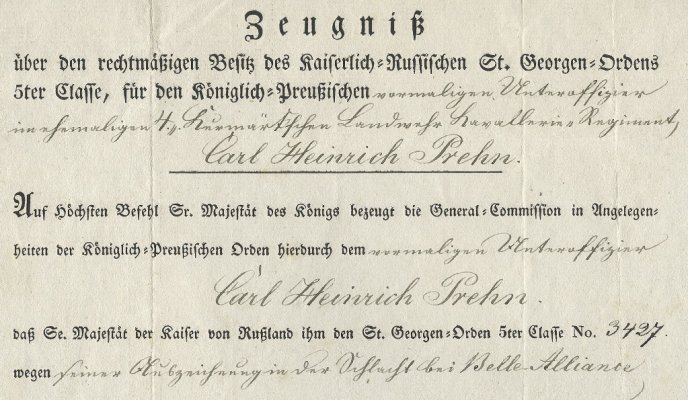 Zeugniß
über den rechtmäßigen Besitz des Kaiserlich-Russischen St. Georgen-Ordens
5ter Classe, für den Königlich-Preußischen vormaligen Unteroffizier
im ehemaligen 4. Kurmärkschen Landwehr Kavallerie-Regiment,
Carl Heinrich Prehn.
Auf Höchsten Befehl Sr. Majestät des Königs bezeugt die General-Commission in Angelegen-
heiten der Königlich-Preußischen Orden hierdurch dem vormaligen Unteroffizier
Carl Heinrich Prehn.
daß Se. Majestät der Kaiser von Rußland ihm den St. Georgen-Orden 5ter Classe No. 3427.
wegen seiner Auszeichnung in der Schlacht bei Belle-Alliance